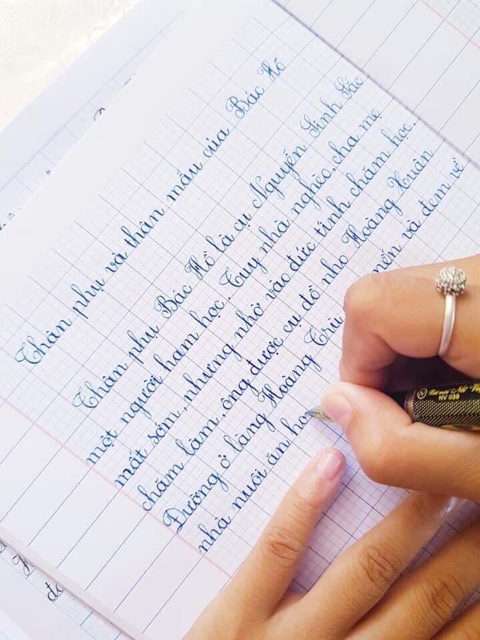 Thân phụ và thân mẫu của Bác Hồ
Thân phụ Bác Hồ là cụ Nguyễn Sinh Sắc
một người ham học. Tuy nhà nghèo, cha mẹ
mất sớm, nhưng nhờ vào đức tính chăm học.
chăm làm, ông được cụ đồ nho Hoàng Xuân
Đường ở làng Hoàng Trù mến và đem về
nhà nuôi ăn họ
NV 039